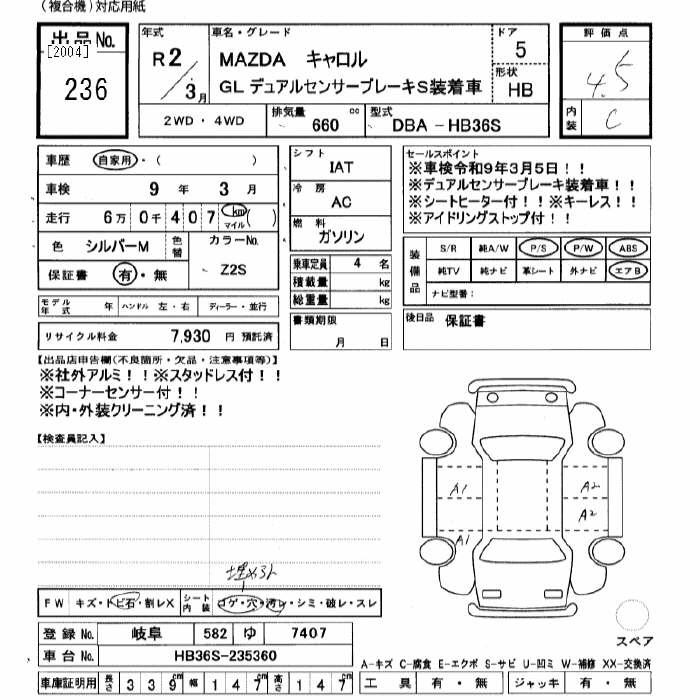 (複合機)対応用紙
出品No.
[2004]
236
年式
R2/3月
車名・グレード
MAZDA キャロル
GL デュアルセンサーブレーキS装着車
ドア
5
形状
HB
2WD・4WD
排気量
660 cc
型式
DBA - HB36S
評価点
4.5
内装
C
車歴 自家用・( )
車検 9年 3月
走行 6万0千407 km マイル ( )
色 シルバーM 色替
カラーNo.
Z2S
保証書 有・無
モデル年式 年 ハンドル 左・右 ディーラー・並行
リサイクル料金 7,930 円 預託済
シフト
IAT
冷房
AC
燃料
ガソリン
乗車定員 4 名
積載量 kg
総重量 kg
書類期限
月 日
セールスポイント
※車検令和9年3月5日!!
※デュアルセンサーブレーキ装着車!!
※シートヒーター付!!※キーレス!!
※アイドリングストップ付!!
装備品
S/R 純A/W P/S P/W ABS
純TV 純ナビ 革シート 外ナビ エアB
ナビ型番:
後日品 保証書
【出品店申告欄(不良箇所・欠品・注意事項等)】
※社外アルミ!!※スタッドレス付!!
※コーナーセンサー付!!
※内・外装クリーニング済!!
【検査員記入】
A1
A2
A2
A1
FW キズ・トビ石・割レX シート内装 コゲ・穴・汚レ・シミ・破レ・スレ
登録No. 岐阜 582 ゆ 7407
車台No. HB36S-235360
スペア
A-キズ C-腐食 E-エクボ S-サビ U-凹ミ W-補修 XX-交換済
車庫証明用 長さ 339cm 幅 147cm 高さ 147cm
工具 有・無 ジャッキ 有・無